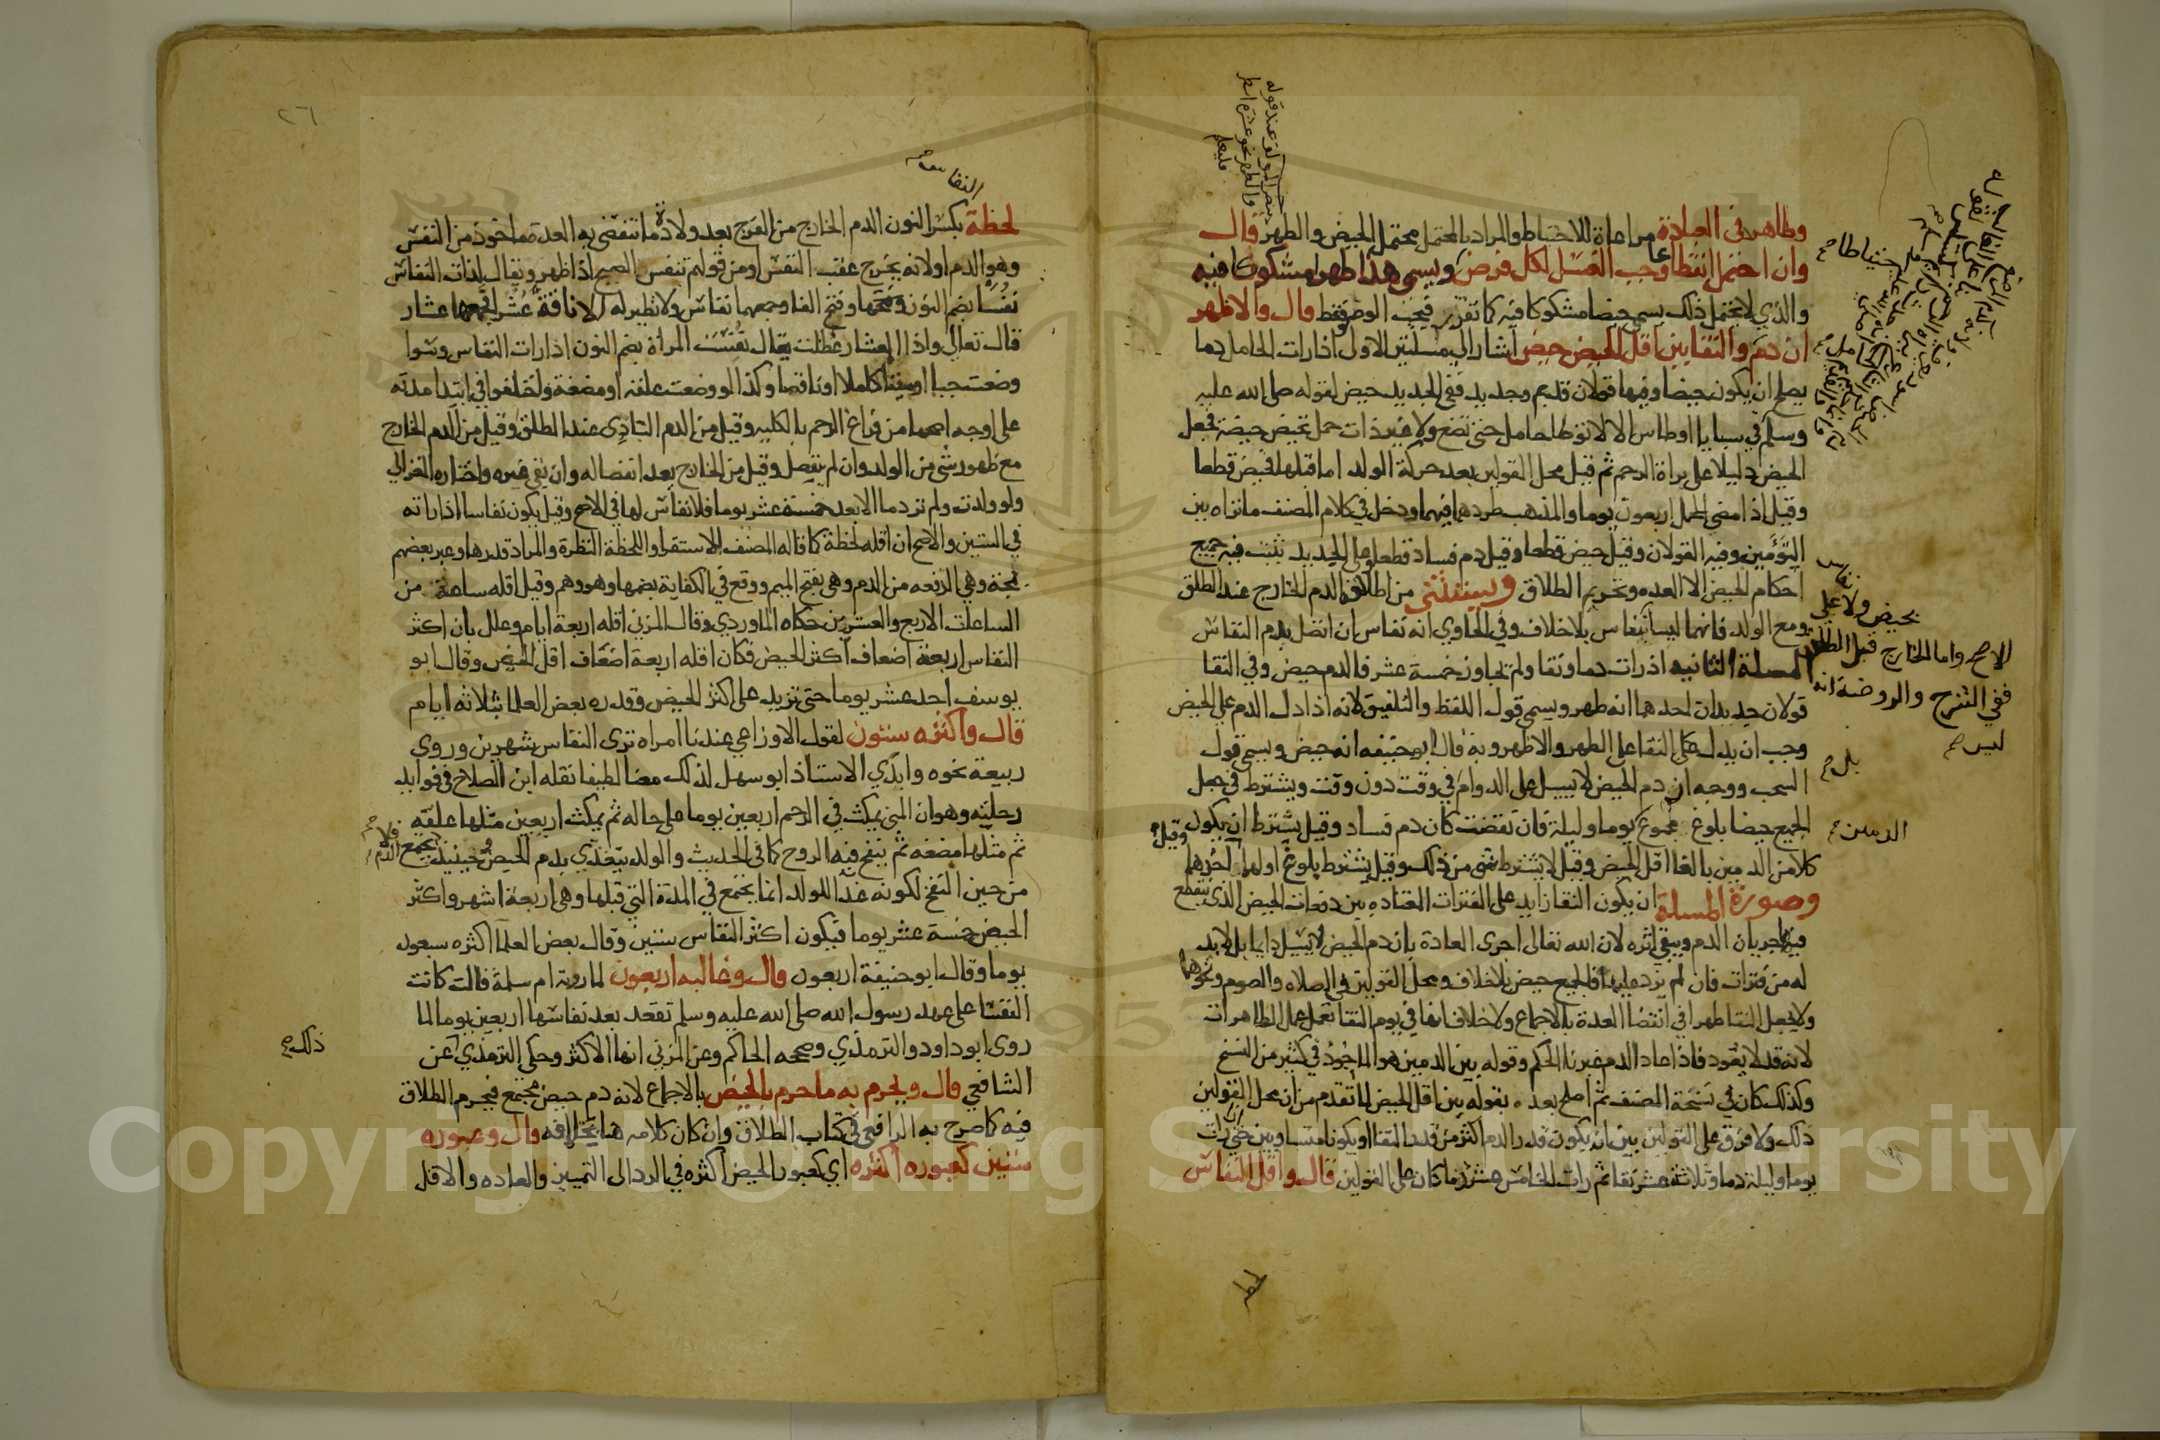 وطاهر في العبادة مراعاة للاحتياط والمراد بالمحتمل محتمل الحيض والطهر قال
وان احتمل انقطاعا وجب الغسل لكل فرض ويسمى هذا طهرا مشكوكا فيه
والذي لا يحتمل ذلك يسمى حيضا مشكوكا فيه كما تقرر فيجب الوضوء فقط قال والاظهر
ان دم والنقا بين اقل الحيض حيض اشار الى مسئلتين الاولى اذا رات الحامل دما
يصلح ان يكون حيضا وفيها قولان قديم وجديد ففي الجديد حيض لقوله صلى الله عليه
وسلم في سبايا اوطاس الا لا توطا حامل حتى تضع ولا غير ذات حمل حتى تحيض حيضة فجعل
الحيض دليلا على براة الرحم ثم قيل محل القولين بعد حركة الولد اما قبلها فحيض قطعا
وقيل اذا مضى للحمل اربعون يوما والمذهب طردهما فيهما ودخل في كلام المصنف ما تراه بين
التؤمين وفيه القولان وقيل حيض قطعا وقيل دم فساد قطعا وعلى الجديد يثبت فيه جميع
احكام الحيض الا العده وتحريم الطلاق ويستثنى من اطلاقه الدم الخارج عند الطلق
ومع الولد فانهما ليسا بنفاس بلا خلاف وفي الحاوي انه نفاس ان اتصل بدم النفاس
المسلة الثانيه اذ رات دما ونقا ولم تجاوز خمسة عشر فالدم حيض وفي النقا
قولان جديدان احدهما انه طهر ويسمى قول اللقط والتلفيق لانه اذا دل الدم على الحيض
وجب ان يدل على النقا على الطهر والاظهر وبه قال ابو حنيفه انه حيض ويسمى قول
السحب ووجه ان دم الحيض لا يسيل على الدوام في وقت دون وقت ويشترط في جعل
الجميع حيضا بلوغ مجموع يوما وليلة فان نقصت كان دم فساد وقيل يشترط ان يكون
كلا من الدمين بالغا اقل الحيض وقيل لا يشترط شي من ذلك وقيل يشترط بلوغ اولهما
وصورة المسلة ان يكون النقا زايد على الفترات المعتاده بين دفعات الحيض الذي ينقطع
فيها جريان الدم ويبقى اثره لان الله تعالى اجرى العادة بان دم الحيض لا يسيل دايما بل لا بد
له من فترات فان لم يزد عليها فالجميع حيض بلا خلاف ومحل القولين في الصلاه والصوم ونحوهما
ولا يجعل النقا طهرا في انقضا العدة بالاجماع ولا خلاف انها في يوم النقا تعمل عمل الطاهرات
لانه قد لا يعود فاذا عاد الدم غيرنا الحكم وقوله بين الدمين هو الموجود في كثير من النسخ
وكذلك كان في نسخة المصنف ثم اصلح بعده بقوله بين اقل الحيض لما تقدم من ان محل القولين
ذلك ولا فرق على القولين بين ان يكون قدر الدم اكثر من قدر النقا او يكونا متساويين
يوما وليلة دما وثلاثة عشر نقا ثم رات الخامس عشر دما كان على القولين قال واقل النفاس
بحيض ولا على
الاصح واما الخارج قبل الطلق
ففي الشرح والروضة انه
ليس
بل
الدمين
٢٦
النفاس
لحظة بكسر النون الدم الخارج من الفرج بعد ولادة ما تنقضي به العدة ماخوذ من النفس
وهو الدم او لانه يخرج عقب النفس او من قولهم تنفس الصبح اذا ظهر ويقال لذات النفاس
نفسا بضم النون وفتحها وفتح الفا وجمعها نفاس ولا نظير له الا ناقة عشرا فجمعها عشار
قال تعالى واذا العشار عطلت يقال نفست المراة بضم النون اذا رات النفاس وسوا
وضعت حيا او ميتا كاملا او ناقصا وكذا لو وضعت علقه او مضغة واختلفوا في ابتدا مدته
على اوجه اصحها من فراغ الرحم بالكليه وقيل من الدم البادي عند الطلق وقيل من الدم الخارج
مع ظهور شي من الولد وان لم ينفصل وقيل من الخارج بعد انفصاله وان بقي غيره واختاره الغزالي
ولو ولدت ولم تر دما الا بعد خمسة عشر يوما فلا نفاس لها في الاصح وقيل يكون نفاسا اذا راته
في الستين والاصح ان اقله لحظة كما قاله المصنف بالاستقرا واللحظة النظرة والمراد قدرها وعبر بعضهم
بمجة وهي الدفعه من الدم وهي بفتح الميم ووقع في الكفاية بضمها وهو وهم وقيل اقله ساعة من
الساعات الاربع والعشرين حكاه الماوردي وقال المزني اقله اربعة ايام وعلل بان اكثر
النفاس اربعة اضعاف اكثر الحيض فكان اقله اربعة اضعاف اقل الحيض وقال ابو
يوسف احد عشر يوما حتى تزيد على اكثر الحيض وقدره بعض العلما بثلاثه ايام
قال واكثره ستون لقول الاوزاعي عندنا امراه ترى النفاس شهرين وروى
ربيعة نحوه وابدى الاستاذ ابو سهل لذلك معنا لطيفا نقله ابن الصلاح في فوايد
رحلته وهو ان المني يمكث في الرحم اربعين يوما على حاله ثم يمكث اربعين مثلها علقه
ثم مثلها مضغه ثم ينفخ فيه الروح كما في الحديث والولد يتغذى بدم الحيض فحينئذ يجتمع الدم
من حين النفخ لكونه غذا للولد انما يجتمع في المدة التي قبلها وهي اربعة اشهر واكثر
الحيض خمسة عشر يوما فيكون اكثر النفاس ستين وقال بعض العلما اكثره سبعون
يوما وقال ابو حنيفة اربعون قال وغالبه اربعون لما روته ام سلمة قالت كانت
النفسا على عهد رسول الله صلى الله عليه وسلم تقعد بعد نفاسها اربعين يوما لما
روى ابو داود والترمذي وصححه الحاكم وعن المزني انها الاكثر وحكى الترمذي عن
الشافعي قال ويحرم به ما حرم بالحيض بالاجماع لانه دم حيض مجتمع فيحرم الطلاق
فيه كما صرح به الرافعي في كتاب الطلاق وان كان كلامه هنا يخالفه قال وعبوره
ستين كعبوره اكثره اي كعبور الحيض اكثره في الرد الى التمييز والعاده والاقل
فلا
ذلك
Copyright © King Saud University
1957